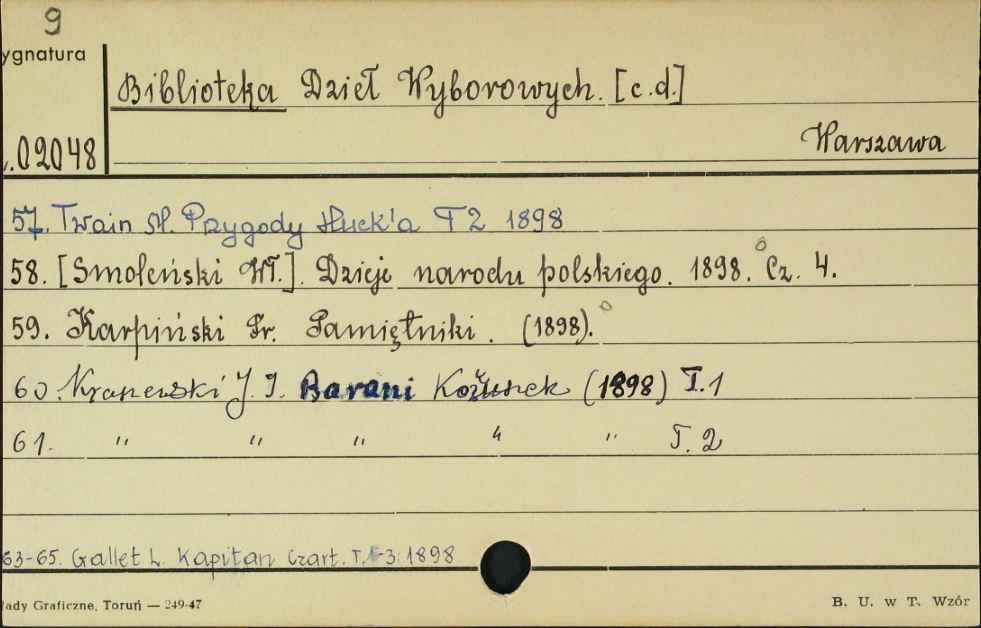 9
ygnatura
Biblioteka Dzieł Wyborowych. [c.d.]
.02048
Warszawa
57. Twain M. Przygody Huck'a T 2 1898
58. [Smoleński Wł.]. Dzieje narodu polskiego. 1898. Cz. 4.
59. Karpiński Fr. Pamiętniki. (1898).
60. Kraszewski J. I. Barani Kożuszek (1898) T.1
61. " " " " " T. 2
63-65. Gallet L. Kapitan Czart. T. 1-3. 1898
łady Graficzne, Toruń — 249-47
B. U. w T. Wzór